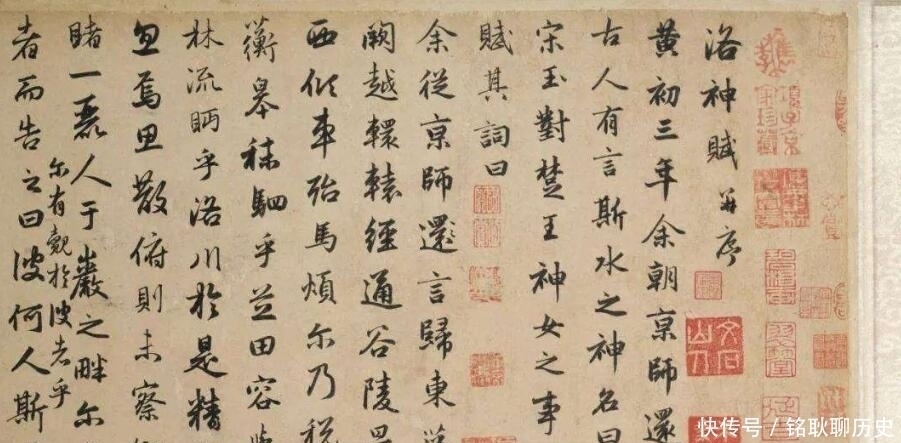 洛神賦并序
黄初三年余朝京師還
古人有言斯水之神名曰
宋玉對楚王神女之事
賦其詞曰
余從京師還言歸東
闕越轘轅經通谷陵
西傾車殆馬煩尔乃税
衡皋秣駟乎芝田容
林流眄乎洛川於是精
忽焉思散俯則未察
睹一麗人于巖之畔尔
尔有覿於彼者乎
者而告之曰彼何人斯
文石山人
快传号／铭耿聊历史